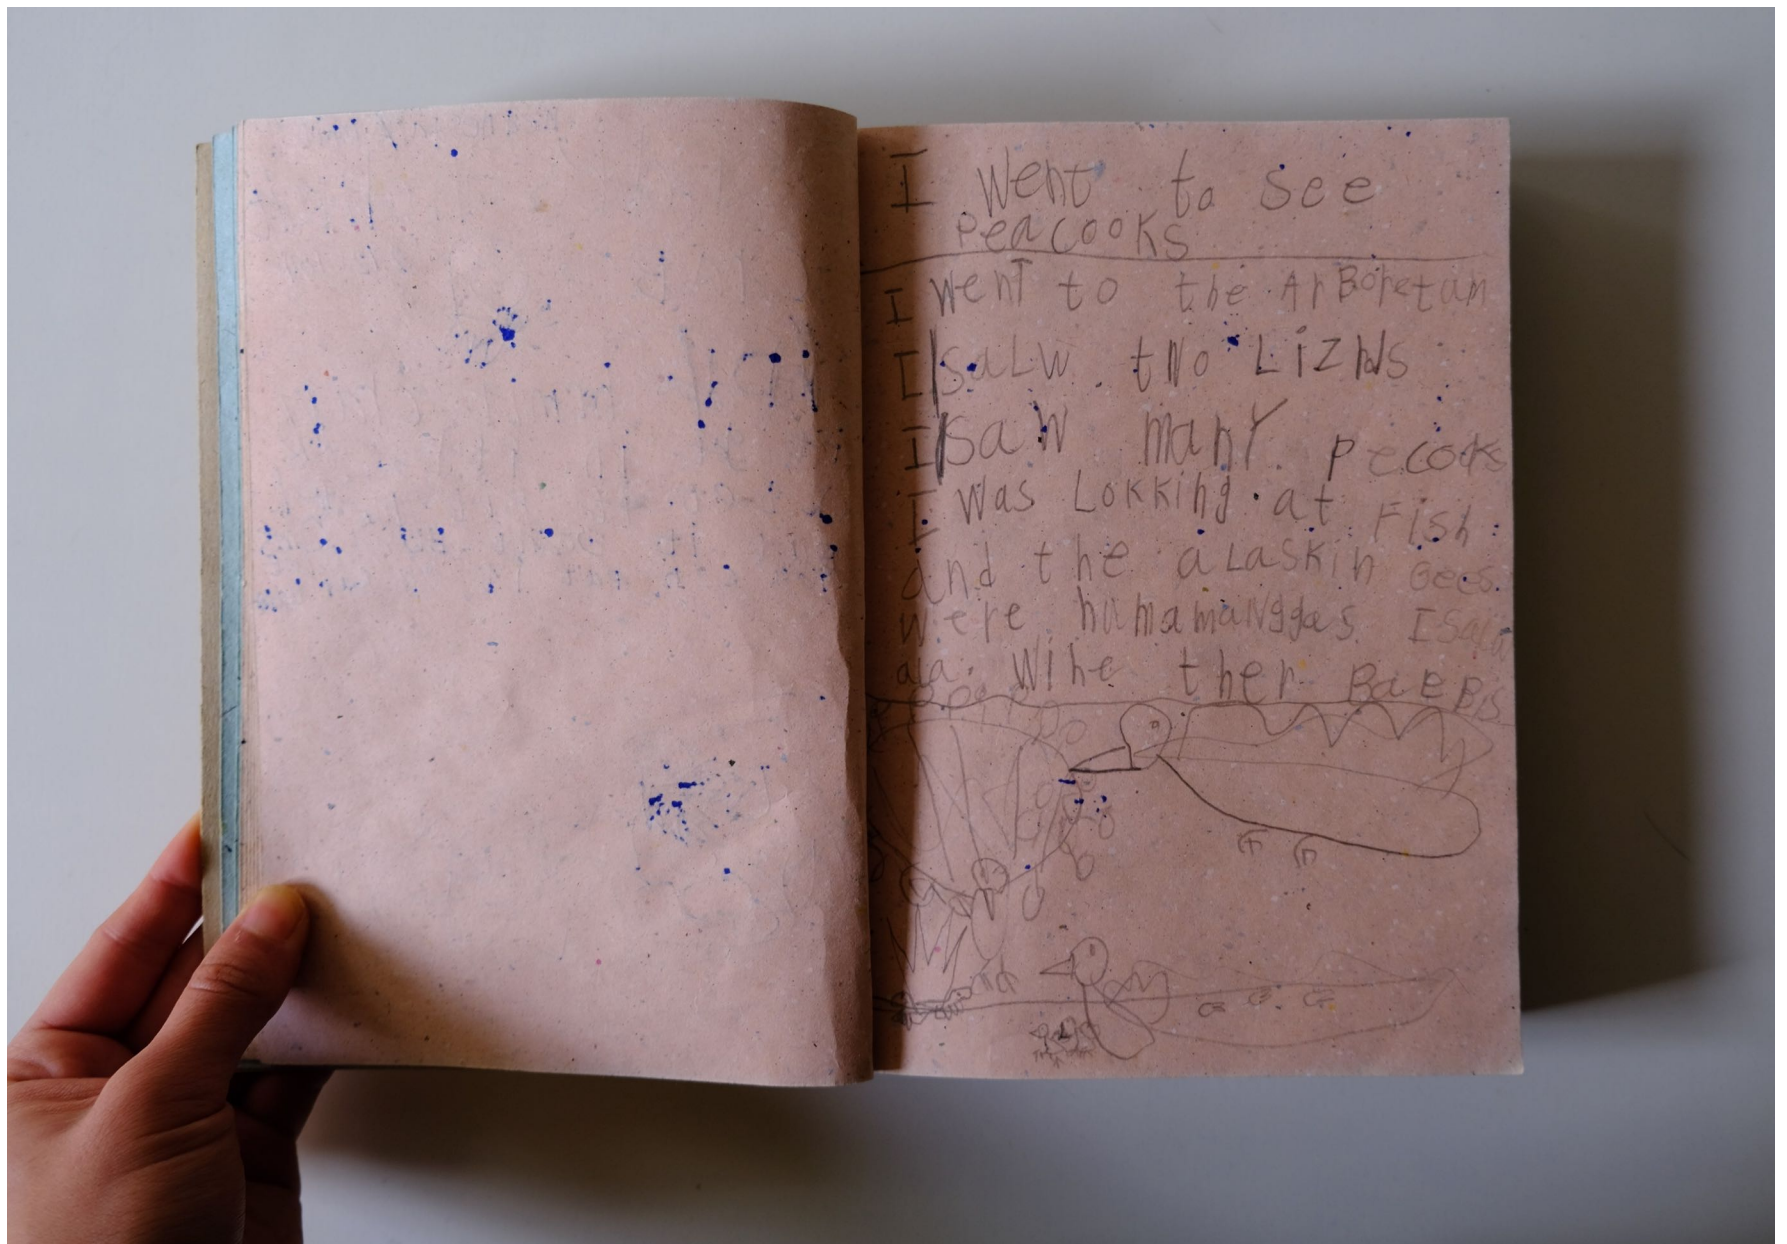 I went to see
peacooks
I went to the ArBoretum
I salw two Lizrds
I saw many pecocks
I was Lokking at Fish
and the aLaskin Gees.
were humamanggas I saw
ala. wihe ther BaeBis.